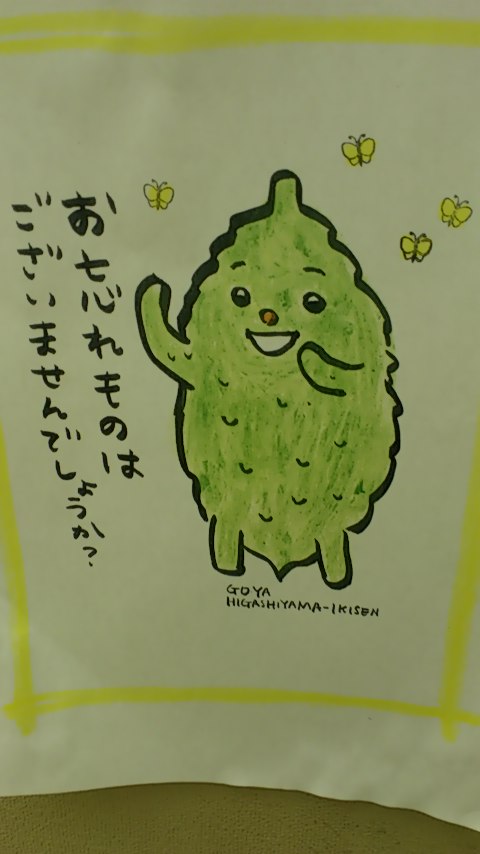 お忘れものは
ございませんでしょうか?
GOYA
HIGASHIYAMA-IKISEN